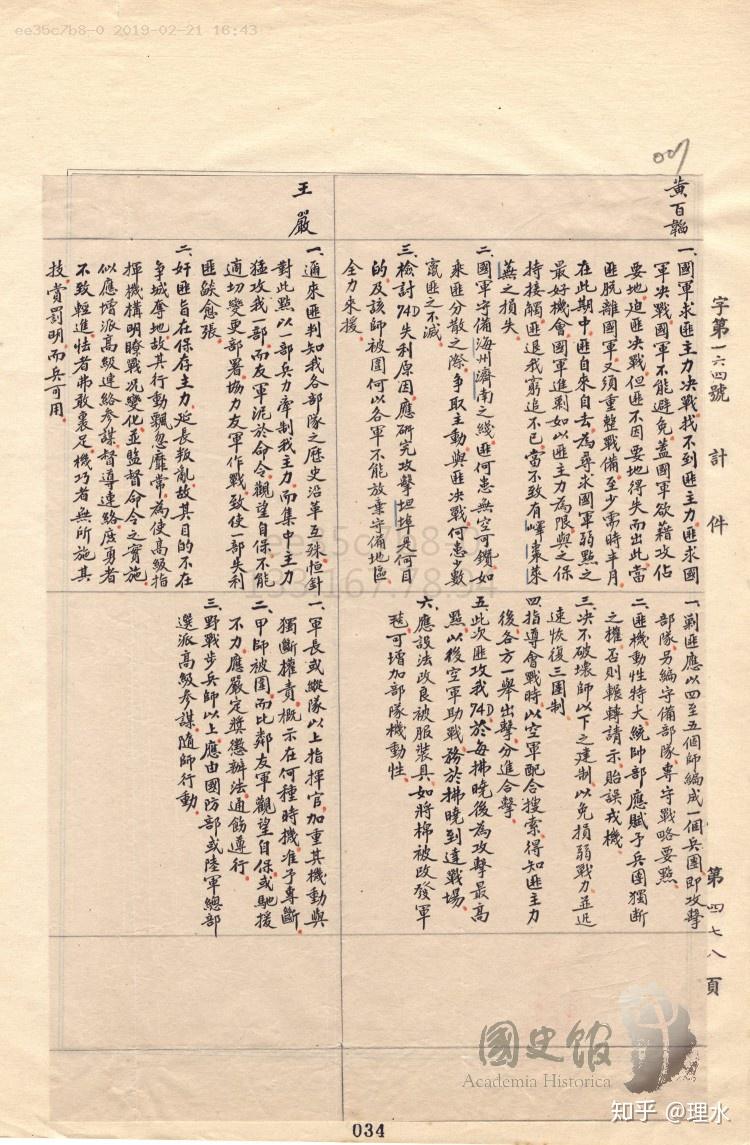 ee35c7b8-0 2019-02-21 16:43
字第一六四號 計 件 第四七八頁
黃百韜
一、國軍求匪主力決戰找不到匪主力、匪求國
軍決戰國軍不能避免、蓋國軍欲藉攻佔
要地迫匪決戰、但匪不因要地得失而出此、當
匪脫離國軍、又須重整戰備、至少需時半月、
在此期中、匪自來自去、為尋求國軍弱點之
最好機會、國軍進剿、如以匪主力為限、與之保
持接觸、匪退我窮追不已、當不致有嶧棗萊
蕪之損失、
二、國軍守備海州濟南之綫、匪何患無空可鑽、如
乘匪分散之際、爭取主動、與匪決戰、何患少數
竄匪之不滅、
三、檢討74D失利原因、應研究攻擊坦埠是何目
的、及該師被圍、何以各軍不能放棄守備地區、
全力來援、
一、剿匪應以四至五個師編成一個兵團、即攻擊
部隊、另編守備部隊、專守戰略要點、
二、匪機動性特大、統帥部應賦予兵團獨斷
之權、否則輾轉請示、貽誤戎機、
三、決不破壞師以下之建制、以免損弱戰力、並迅
速恢復三團制、
四、指導會戰時、以空軍配合搜索、得知匪主力
後、各方一舉出擊、分進合擊、
五、此次匪攻我74D、於每拂曉後為攻擊最高
點、以後空軍助戰、務於拂曉到達戰場、
六、應設法改良被服裝具、如將棉被改發軍
毯、可增加部隊機動性、
王嚴
一、邇來匪判知我各部隊之歷史沿革互殊、恒針
對此點、以一部兵力牽制我主力、而集中主力
猛攻我一部、而友軍泥於命令、觀望自保、不能
適切變更部署、協力友軍作戰、致使一部失利、
匪燄愈張、
二、奸匪旨在保存主力、延長叛亂、故其目的不在
爭城奪地、故其行動飄忽靡常、為使高級指
揮機構明瞭戰況變化、並監督命令之實施、
似應增派高級連絡參謀、督導連絡、庶勇者
不致輕進、怯者弗敢裹足、機巧者無所施其
技、賞罰明、而兵可用、
一、軍長或縱隊以上指揮官、加重其機動與
獨斷權責、概示在何種時機、准予專斷、
二、甲師被圍、而比鄰友軍觀望自保、或馳援
不力、應嚴定獎懲辦法、通飭遵行、
三、野戰步兵師以上、應由國防部或陸軍總部
選派高級參謀、隨師行動、
國史館
Academia Historica
知乎 @理水
034